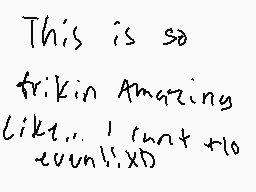 This is so
frikin Amazing
Like.. I cant
evun!! XD